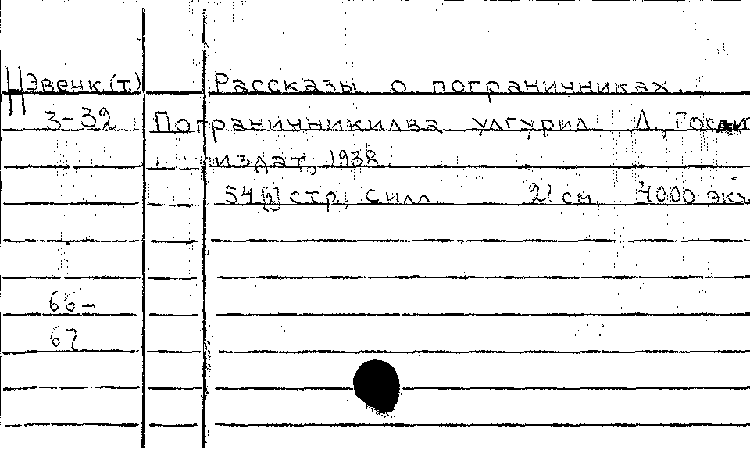 Эвенк.(т) Рассказы о пограничниках.
3-32 Пограничникилва улгурил Л., Гослит
издат, 1938.
54[2] стр. с илл 21 см 4000 экз
66-
67